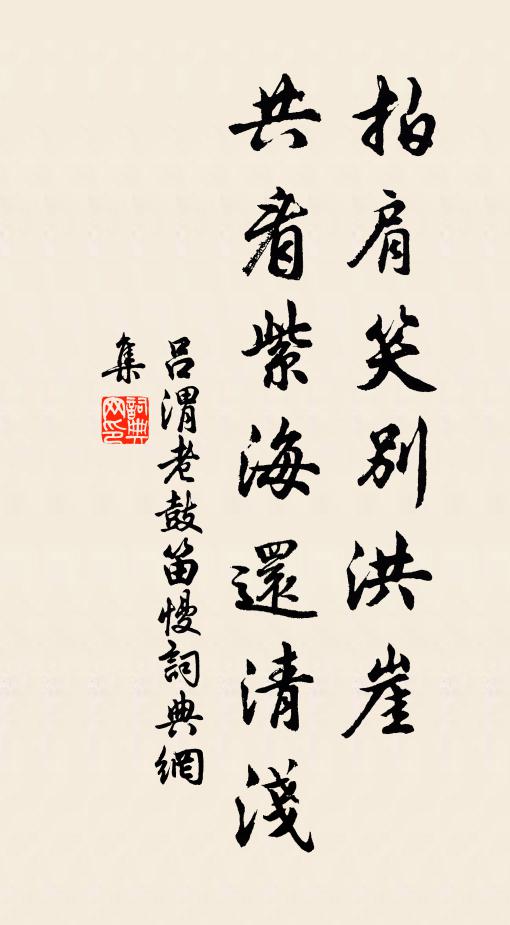 拍肩笑别洪崖
共看紫海還清淺
吕渭老鼓笛慢詞典網
集
詞典
网印